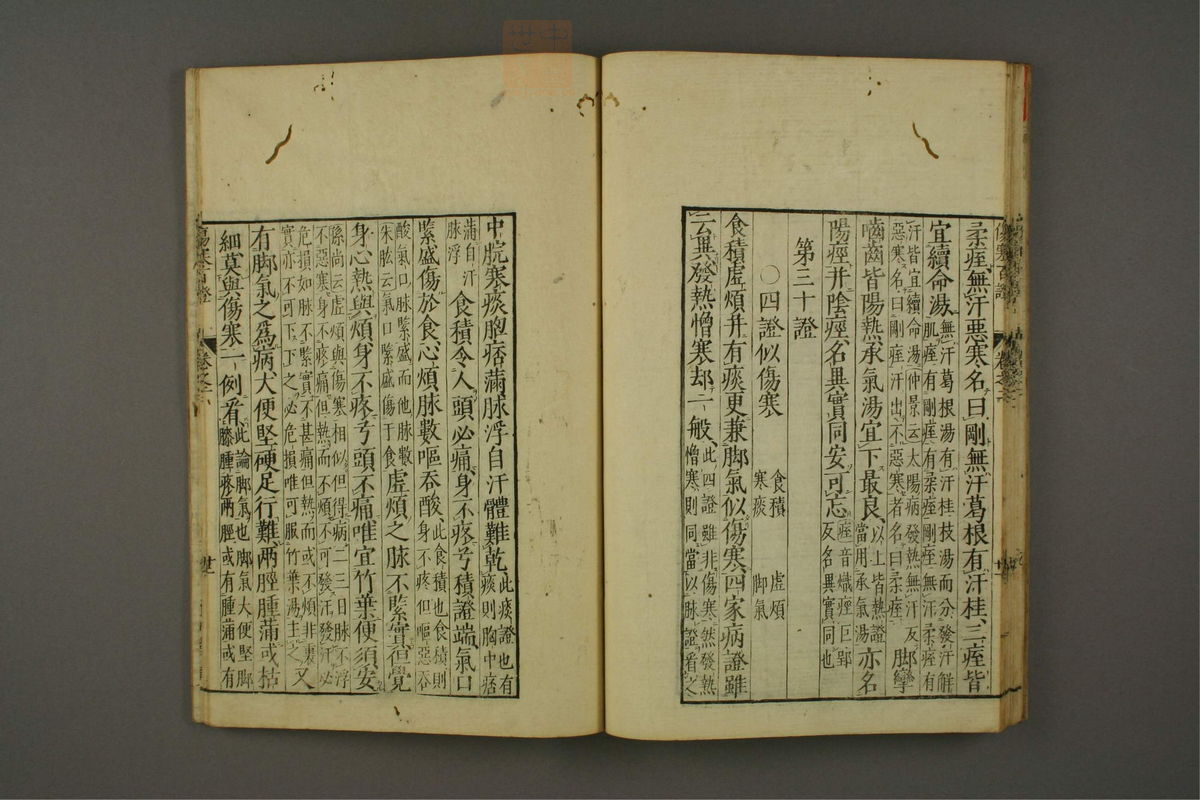 柔痓無汗惡寒名曰剛無汗葛根有汗桂二痓皆
宜續命湯無汗葛根湯有汗桂枝湯而分發汗解
肌痓有剛痓有柔痓剛痓無汗柔痓有
汗皆宜續命湯仲景云太陽病發熱無汗反
惡寒名曰剛痓汗出不惡寒者名曰柔痓脚攣
嚙齒皆陽熱承氣湯宜下最良以上皆熱證
當用承氣湯亦名
陽痙并陰痙名異實同安可忘痓音熾痙巨郢
反名異實同也
第三十證
○四證似傷寒
食積 虛煩
寒痰 脚氣
食積虛煩并有痰更兼脚氣似傷寒四家病證雖
云異發熱憎寒却一般此四證雖非傷寒然發熱
憎寒則同當以脉證看之
傷寒百證
卷之
中脘寒痰胸痞滿脉浮自汗體難乾此痰證也有
痰則胸中痞
滿自汗
脉浮食積令人頭必痛身不疼兮積證端氣口
緊盛傷於食心煩脉數嘔吞酸此食積也食積則
身不疼但嘔惡吞
酸氣口脉緊盛而他脉數
朱肱云氣口緊盛傷于食虛煩之脉不緊實但覺
身心熱與煩身不疼兮頭不痛唯宜竹葉便須安
孫尚云虛煩與傷寒相似但得病二三日脉不浮
不惡寒身不疼痛但熱而不煩不可發汗發汗必
危損如脉不緊實不甚痛但熱而或不煩非裏
實亦不可下下之必危損唯可服竹葉湯主之又
有脚氣之爲病大便堅硬足行難兩脛腫滿或枯
細莫與傷寒一例看此論脚氣也脚氣大便堅脚
膝腫疼兩脛或有腫滿或有
傷寒百證
卷之